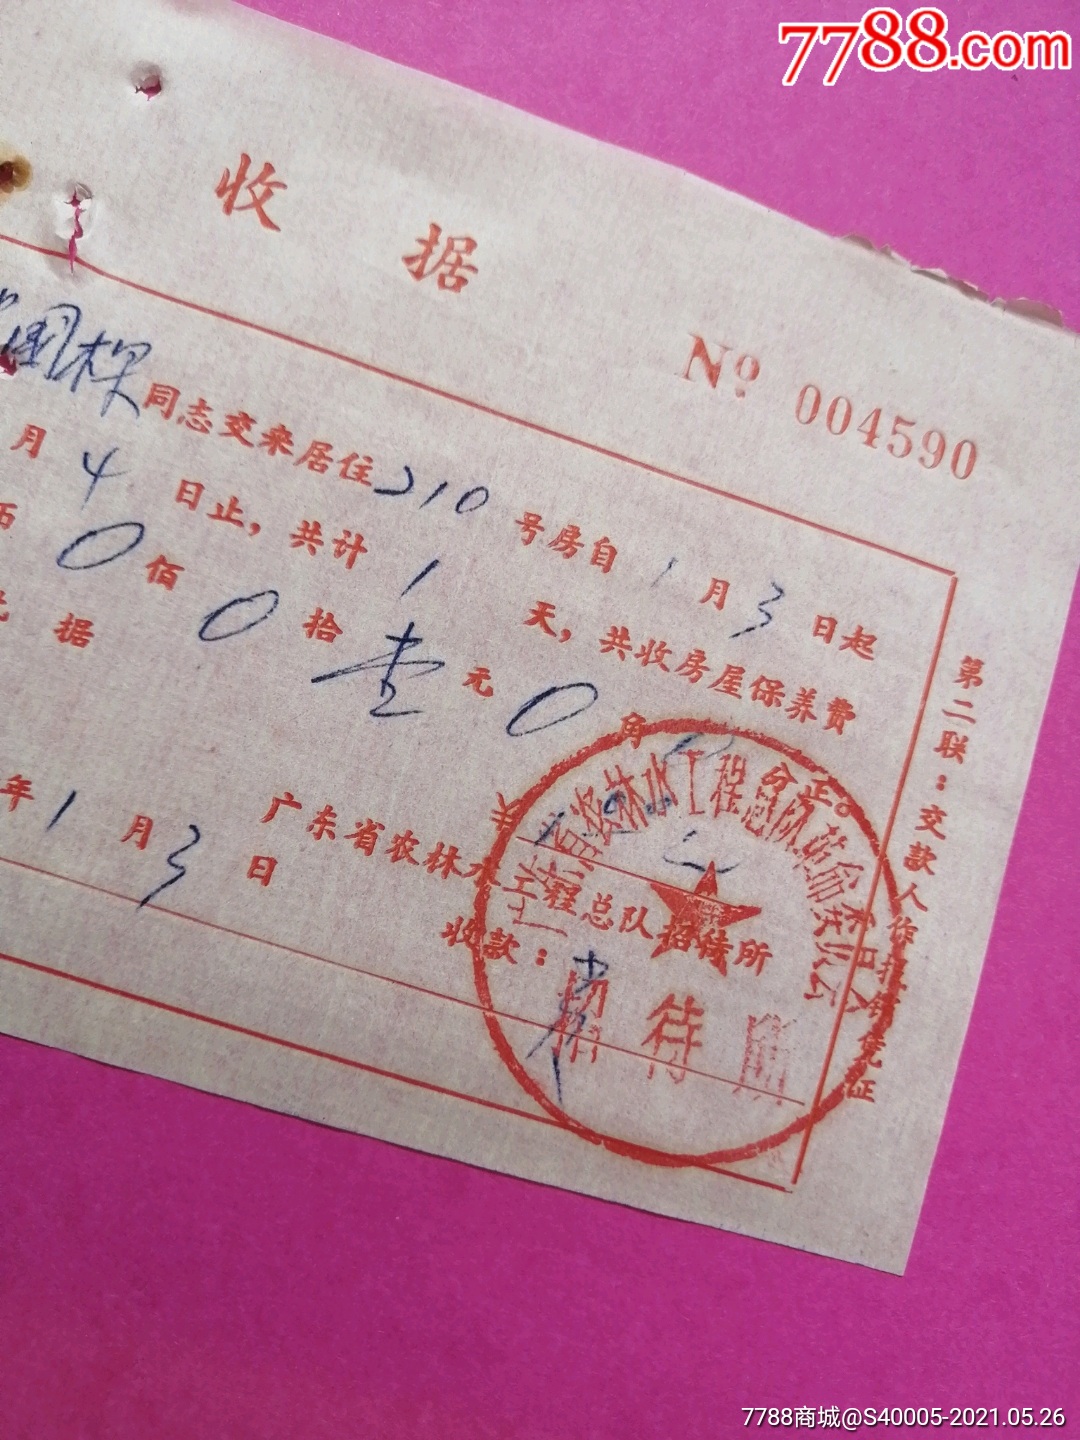 7788.com
收据
No 004590
国樑同志交来居住210号房自1月3日起
月4日止，共计1天，共收房屋保养费
0佰0拾壹元0角0分正。
据
年1月3日
广东省农林水工程总队招待所
收款：
招待所
第二联：交款人作报销凭证
7788商城@S40005-2021.05.26